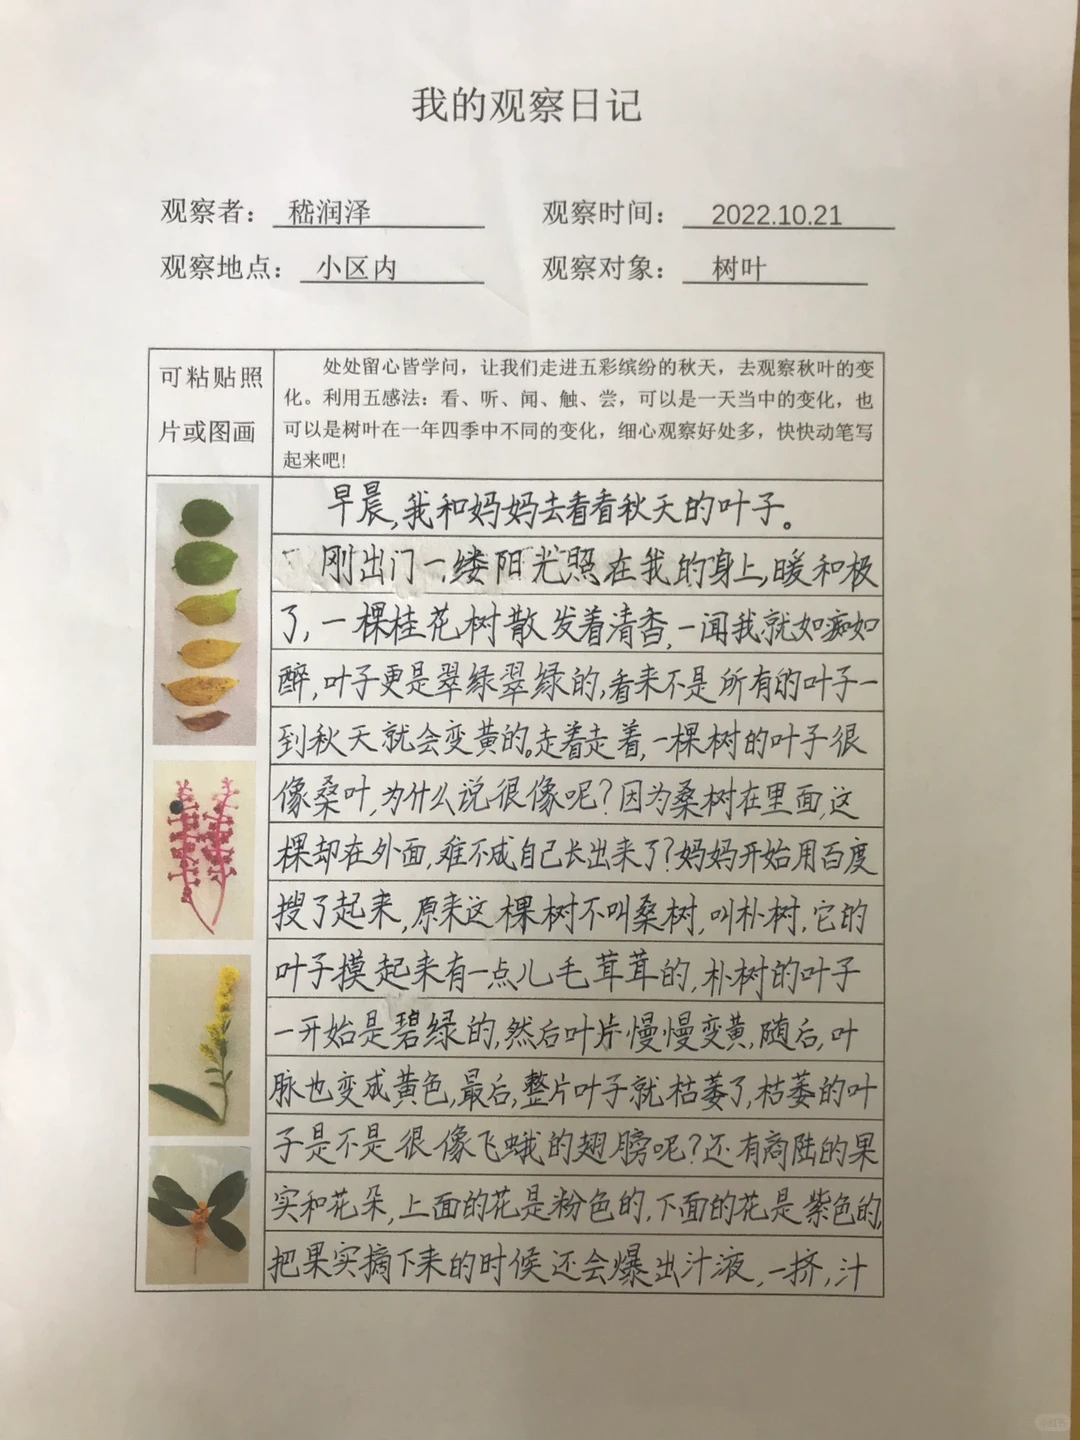 我的观察日记
观察者：嵇润泽 观察时间：2022.10.21
观察地点：小区内 观察对象：树叶
可粘贴照
片或图画
处处留心皆学问，让我们走进五彩缤纷的秋天，去观察秋叶的变
化。利用五感法：看、听、闻、触、尝，可以是一天当中的变化，也
可以是树叶在一年四季中不同的变化，细心观察好处多，快快动笔写
起来吧!
早晨,我和妈妈去看看秋天的叶子。
刚出门一缕阳光照在我的身上,暖和极
了,一棵桂花树散发着清香,一闻我就如痴如
醉,叶子更是翠绿翠绿的,看来不是所有的叶子一
到秋天就会变黄的。走着走着,一棵树的叶子很
像桑叶,为什么说很像呢?因为桑树在里面,这
棵却在外面,难不成自己长出来了?妈妈开始用百度
搜了起来,原来这棵树不叫桑树,叫朴树,它的
叶子摸起来有一点儿毛茸茸的,朴树的叶子
一开始是碧绿的,然后叶片慢慢变黄,随后,叶
脉也变成黄色,最后,整片叶子就枯萎了,枯萎的叶
子是不是很像飞蛾的翅膀呢?还有商陆的果
实和花朵,上面的花是粉色的,下面的花是紫色的,
把果实摘下来的时候还会爆出汁液,一挤,汁